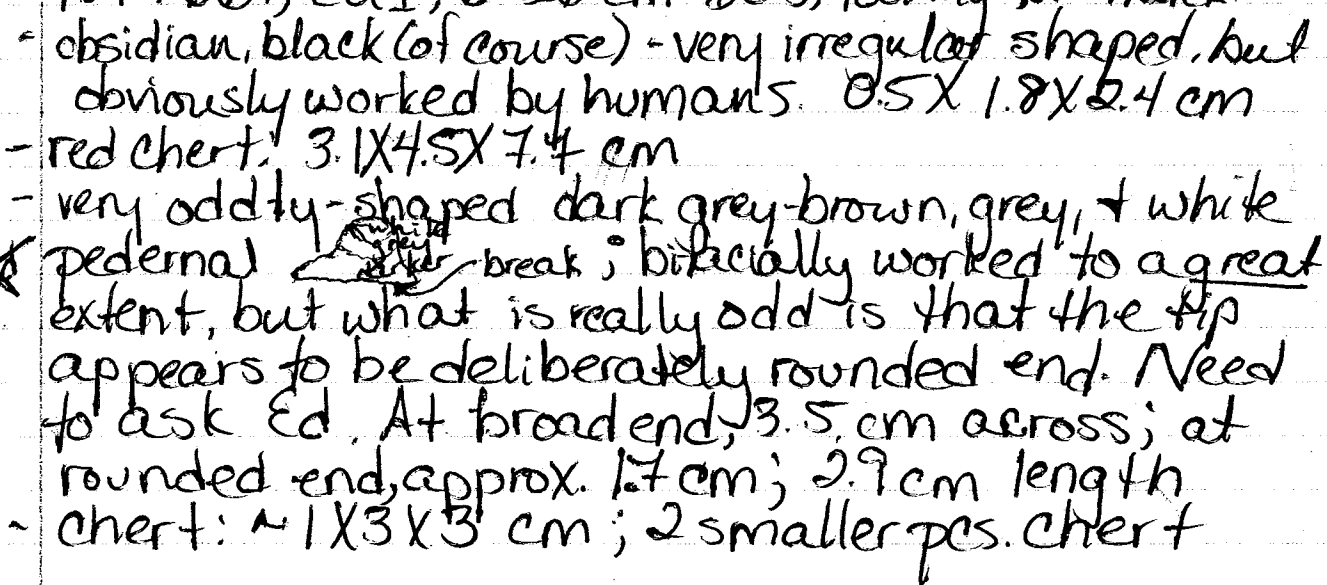 - obsidian, black (of course) - very irregular shaped, but
obviously worked by humans. 0.5 X 1.8 X 2.4 cm
- red chert: 3.1X4.5X7.7 cm
- very oddly-shaped dark grey-brown, grey, + white
pedernal white grey darker break; bifacially worked to a great
extent, but what is really odd is that the tip
appears to be deliberately rounded end. Need
to ask Ed. At broad end, 3.5 cm across; at
rounded end, approx. 1.7 cm; 2.9 cm length
- chert: ~ 1 X 3 X 3 cm; 2 smaller pcs. chert